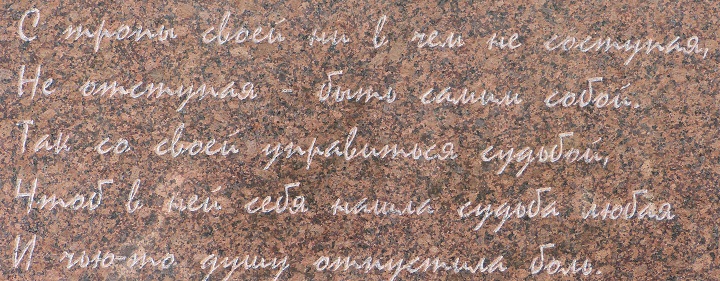 С тропы своей ни в чем не соступая,
Не отступая - быть самим собой.
Так со своей управиться судьбой,
Чтоб в ней себя нашла судьба любая
И чью-то душу отпустила боль.